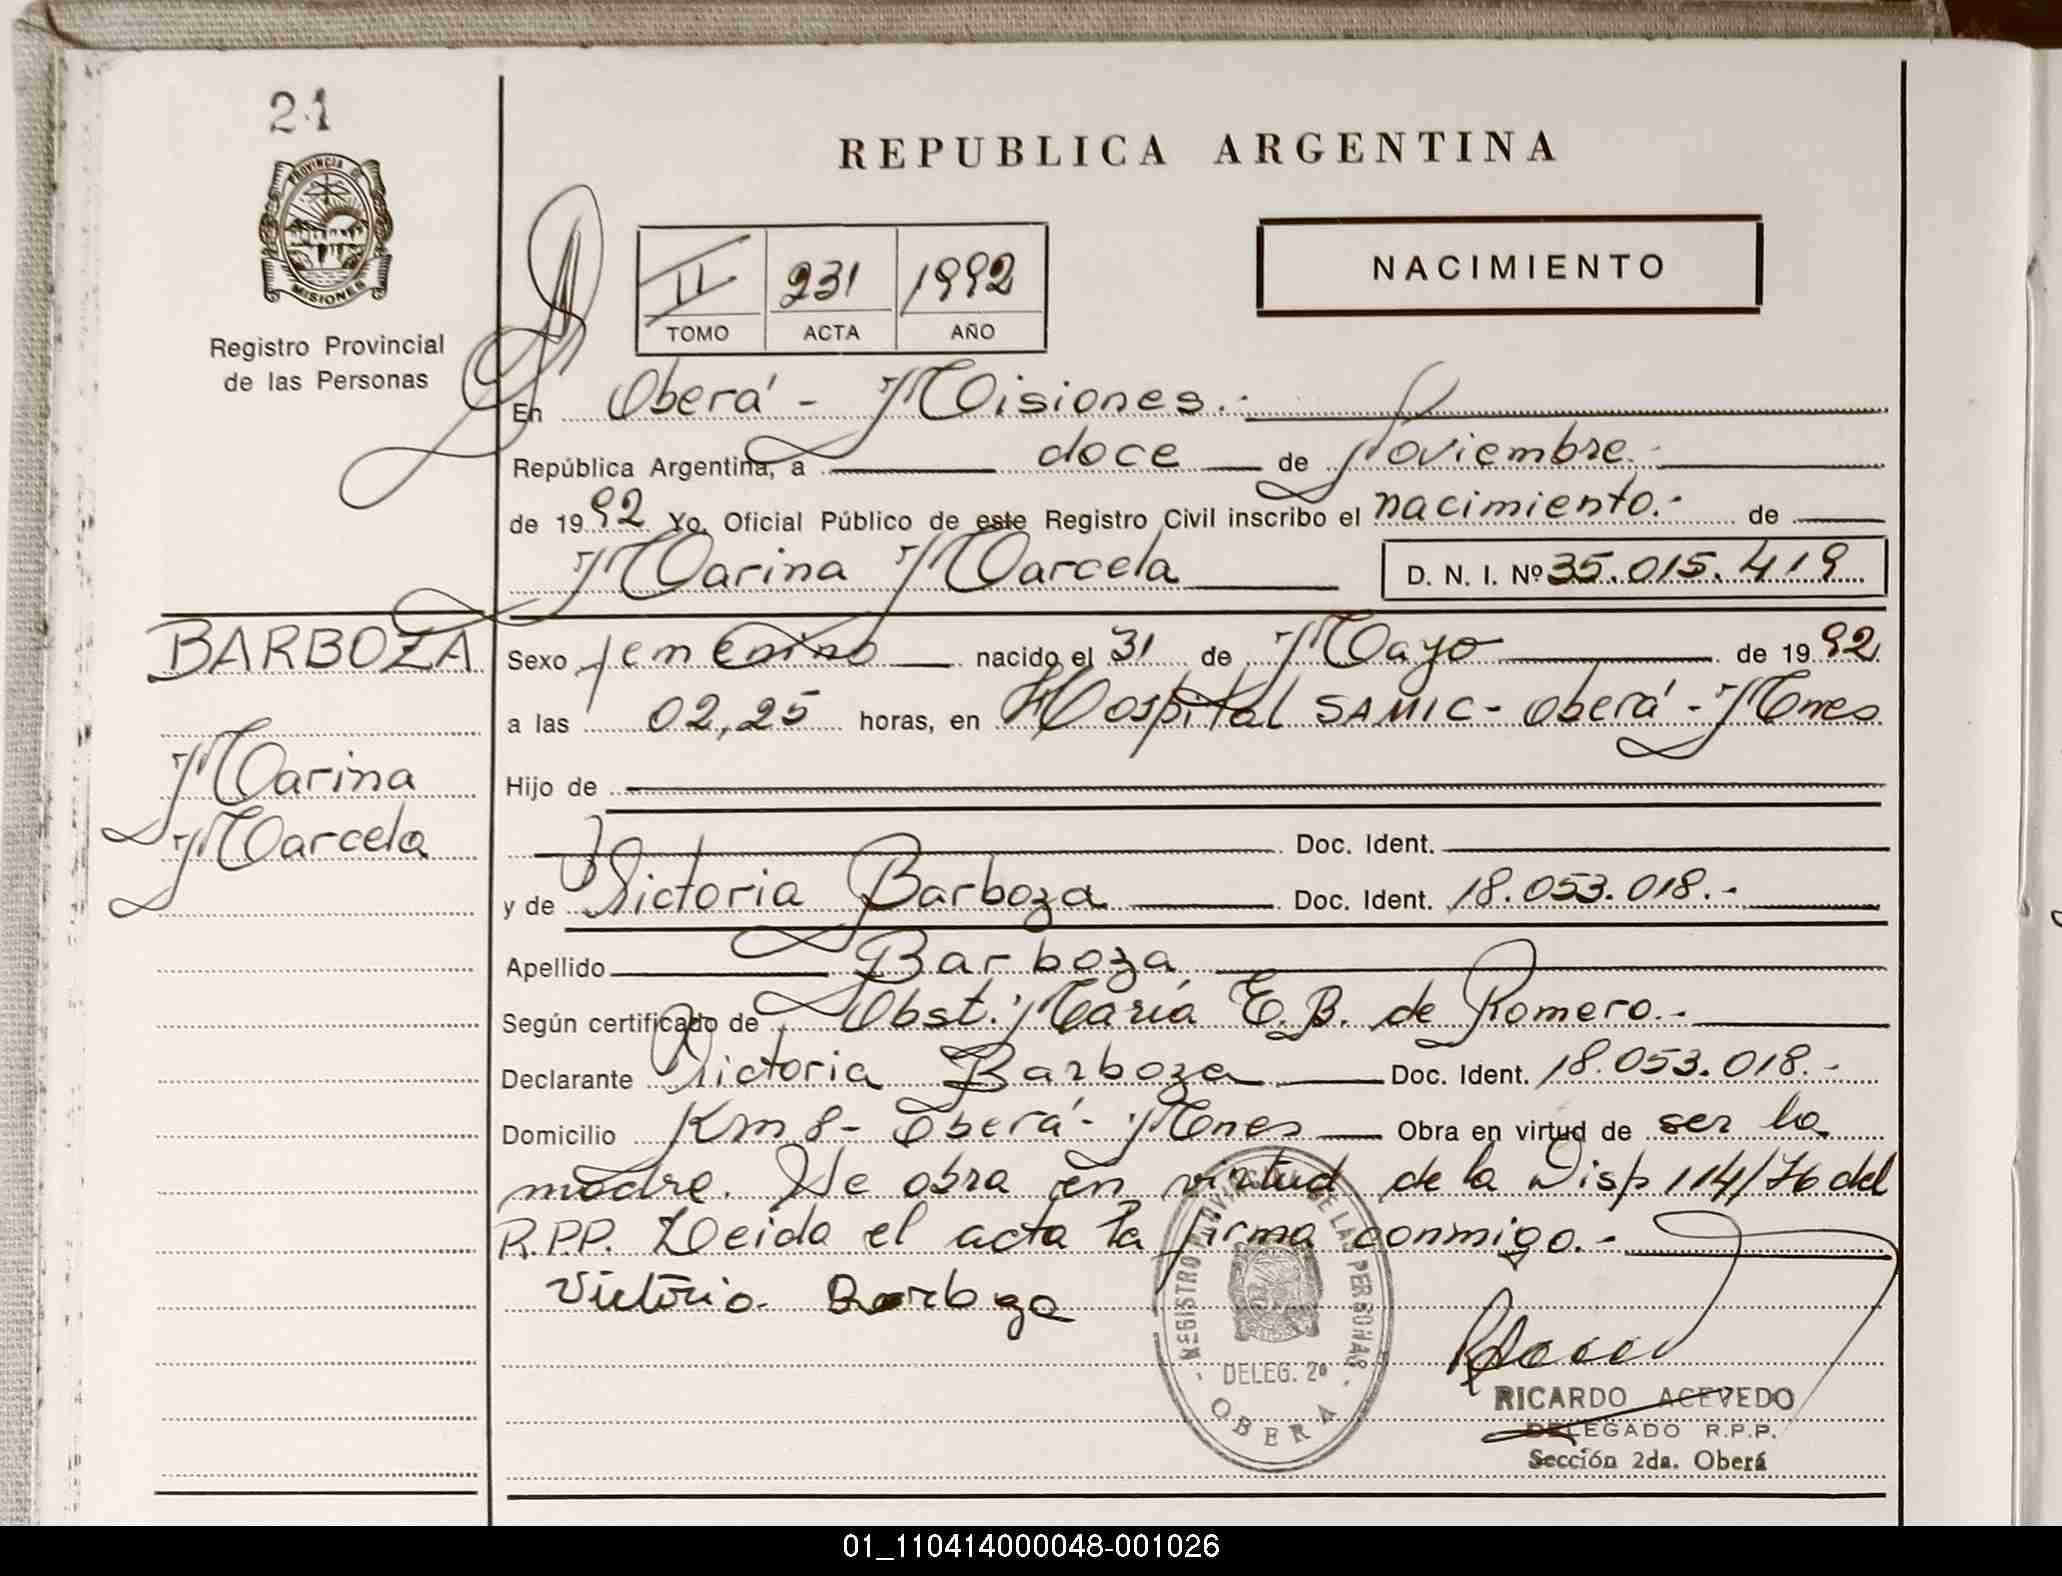 21
PROVINCIA DE
MISIONES
Registro Provincial
de las Personas
REPUBLICA ARGENTINA
II 231 1992
TOMO ACTA AÑO
NACIMIENTO
En Oberá - Misiones.-
República Argentina, a doce de Noviembre.-
de 1992 Yo, Oficial Público de este Registro Civil inscribo el nacimiento.- de
Marina Marcela D. N. I. Nº 35.015.419
BARBOZA
Marina
Marcela
Sexo femenino nacido el 31 de Mayo de 1992
a las 02,25 horas, en Hospital SAMIC - Oberá - Mnes
Hijo de
Doc. Ident.
y de Victoria Barboza Doc. Ident. 18.053.018.-
Apellido Barboza
Según certificado de Obst. María E. B. de Romero.-
Declarante Victoria Barboza Doc. Ident. 18.053.018.-
Domicilio Km 8 - Oberá - Mnes Obra en virtud de ser la
madre. Se obra en virtud de la Disp 114/76 del
R.P.P. Leida el acta la firma conmigo.-
Victoria Barboza
REGISTRO PROVINCIAL DE LAS PERSONAS
DELEG. 2ª
OBERA
RICARDO ACEVEDO
DELEGADO R.P.P.
Sección 2da. Oberá
01_110414000048-001026